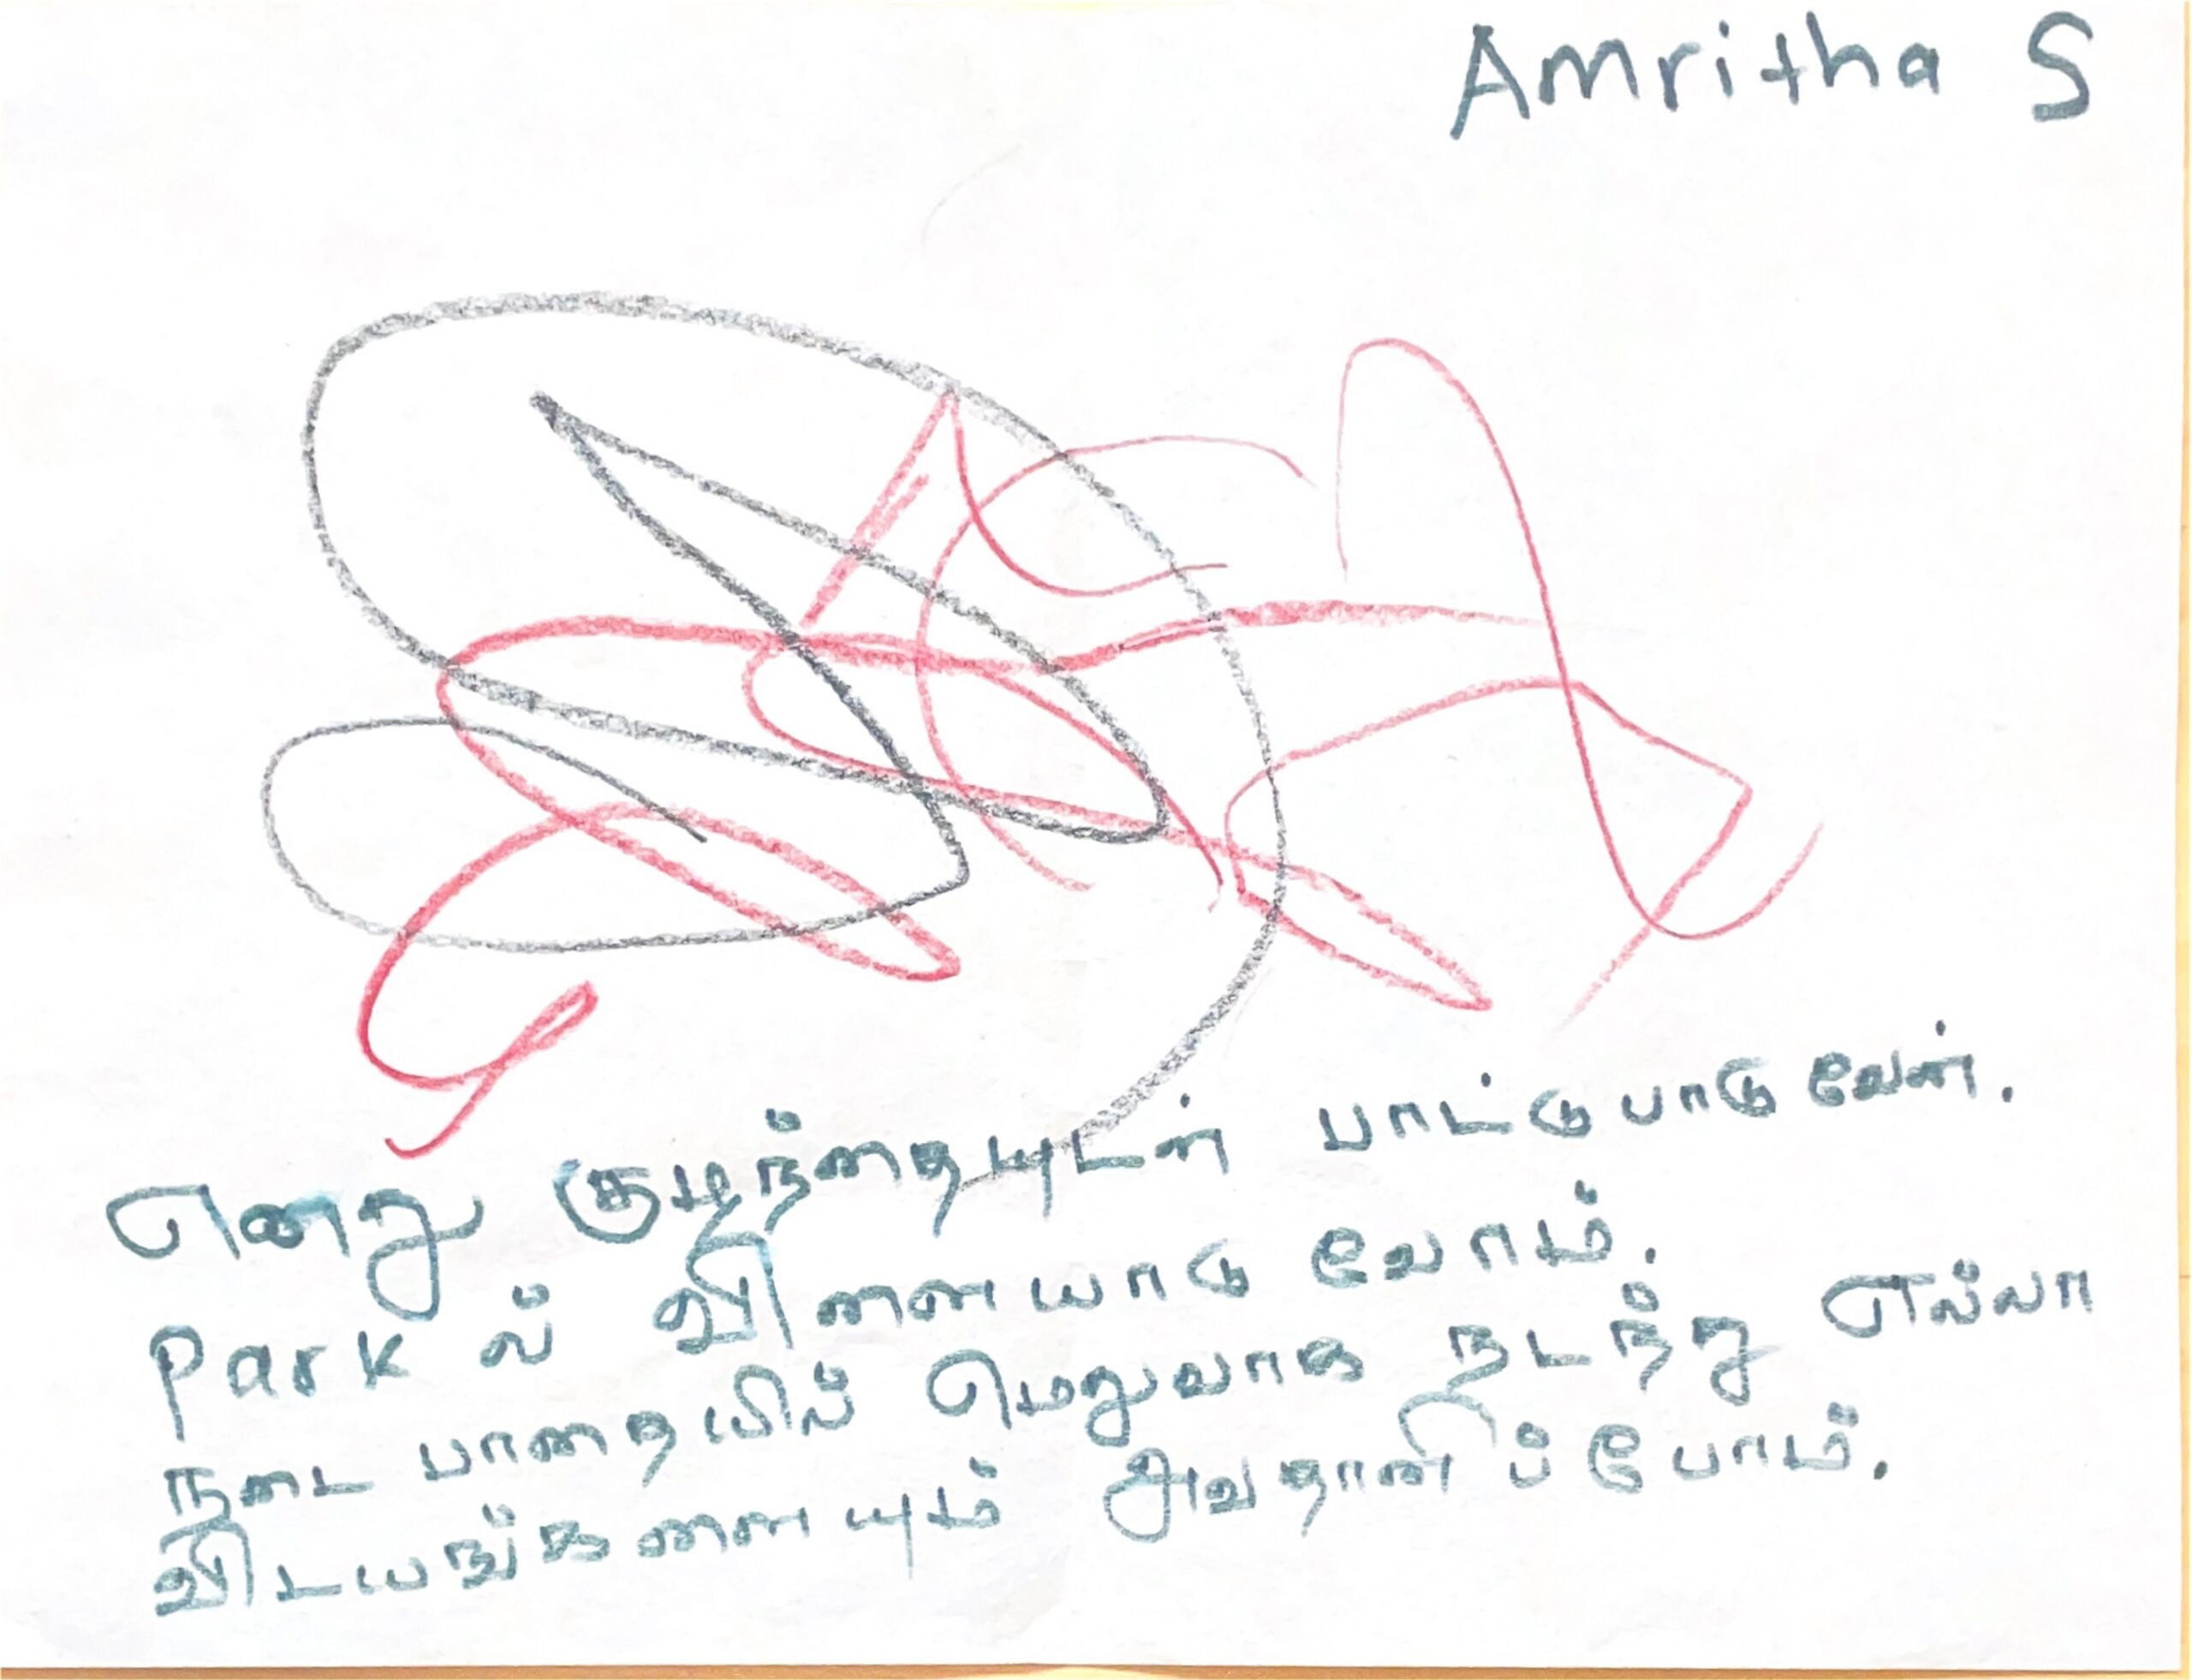 Amritha S
எனது குழந்தையுடன் பாட்டு பாடு வேன்.
Park ல் விளையாடு வோம்.
நடை பாதையில் மெதுவாக நடந்து எல்லா
விடயங்களையும் அவதானிப்போம்.